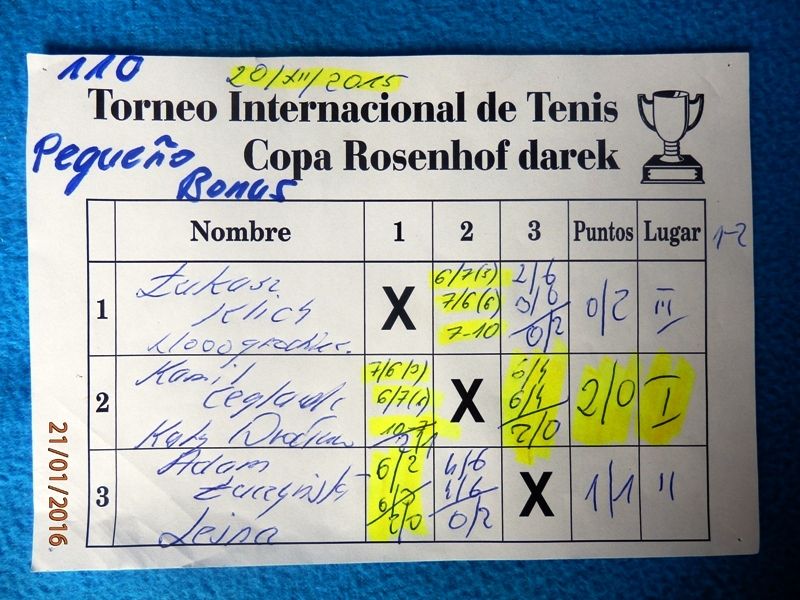 110
20/XII/2015
Torneo Internacional de Tenis
Pequeño Copa Rosenhof darek
Bonus
Nombre 1 2 3 Puntos Lugar 1-2
1 Łukasz Klich X 6/7(3) 7/6(6) 7-10 2/6 0/6 0/2 0/2 III
2 Kamil 7/6(3) 10-7 X 6/4 6/4 2/0 2/0 I
3 Adam Lesna 6/2 2/0 4/6 4/6 0/2 X 1/1 II
21/01/2016